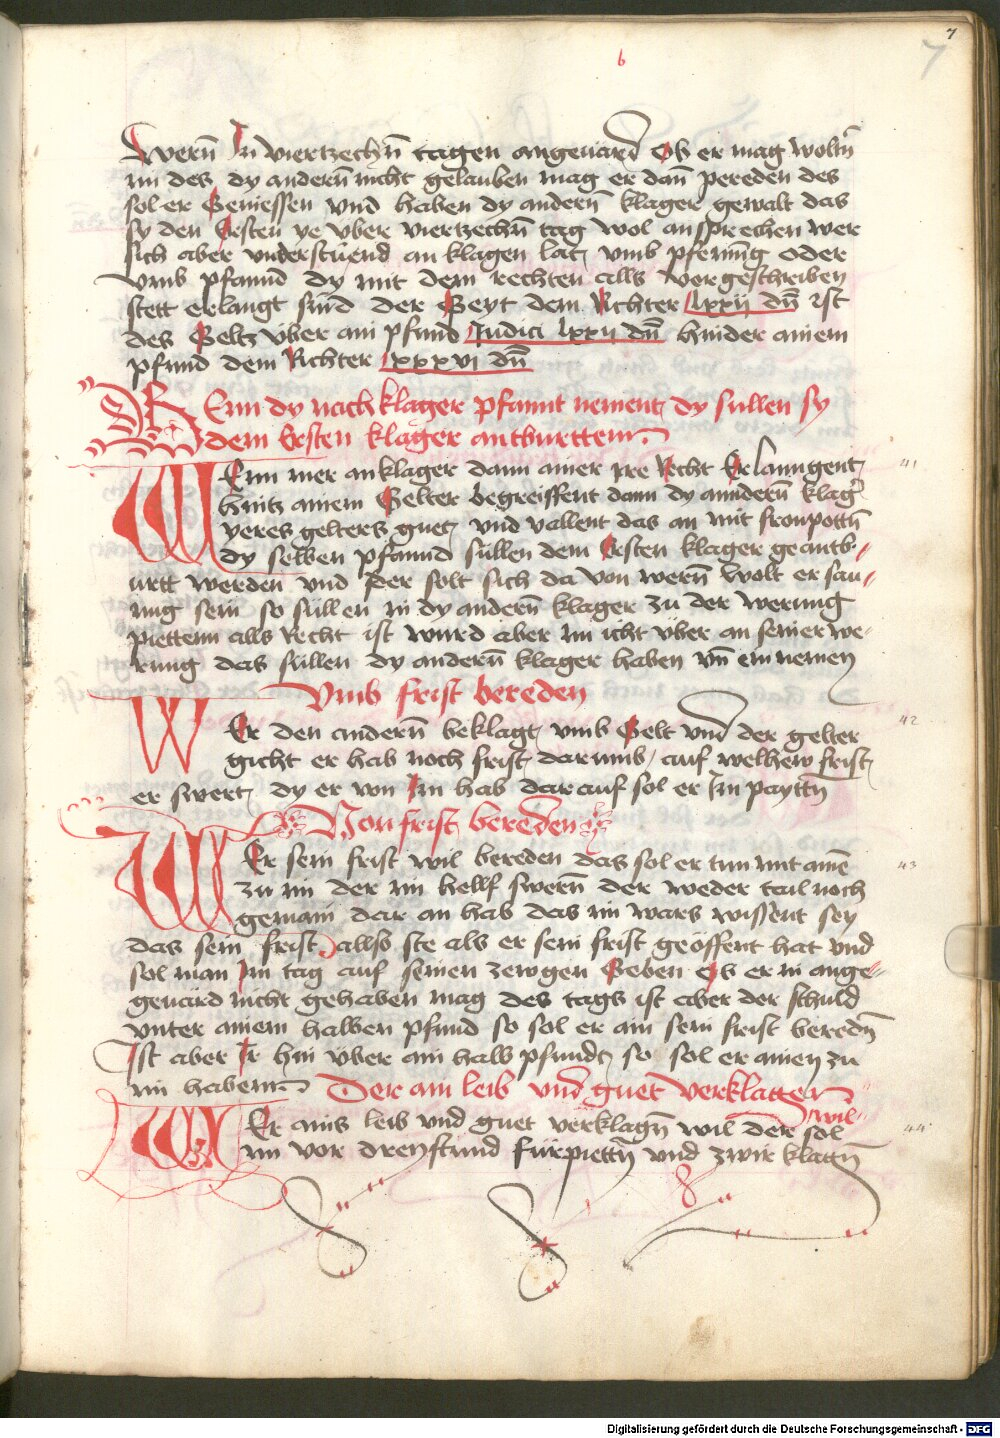 7
7
6
wern̄ In viertzechn̄ tagen angeuard Ob er mag woltn̄
im des dy andern̄ nicht gelauben mag er dan̄ pereden des
sol er Geniessen vnd haben dy andern̄ klager gewalt das
sy den Ersten ye vber viertzechn̄ tag wol ansprechen wer
sich aber vnderstuend an klagen lat vmb pfening oder
vmb pfannd dy mit dem rechten alls vorgeschriben
stett erlangt sind der Geyt dem Richter lxxij dn̄ ist
des Geltz vber ain pfund Judici lxxij dn̄ hinder ainem
pfund dem Richter xxxvj dn̄
Wenn dy nachklager pfannt nement dy sullen sy
dem Ersten klager antburttenn
Wenn mer anklager dann ainer jre Recht Erlanngent
hintz ainem Gelter begreiffent dann dy anndern̄ klaḡ
yeres gelters guet vnd vallent das an mit fronpottn̄
dy selben pfannd sullen dem Ersten klager geantb-
urtt werden vnd der solt sich da von wern̄ wolt er sau-
mig sein so sullen in dy andern̄ klager zu der werung
piettenn alls Recht ist wurd aber im icht vber an seiner we-
rung das sullen dy andern̄ klager haben vn̄ ein nemen
Vmb frist bereden
41
Wer den andern̄ beklagt vmb Gelt vnd der gelter
gicht er hab noch frist darumb auf welhew frist
er swert dy er von Im hab darauf sol er Im payttn̄
42
Von frist bereden
Wer sein frist wil bereden das sol er tun mit ainē
zu im der im hellf swern̄ der weder tail noch
gemain dar an hab das im wars wissent sey
das sein frist allso ste als er sein frist geöffent hat vnd
sol man Im tag auf seinen zewgen Geben Ob er in ange-
geuard nicht gehaben mag des tags ist aber der schuld
vnter ainem halben pfund so sol er ain sein frist beredn̄
Ist aber Ir hin vber ain halb pfundt so sol er ainen zu
im habenn
43
Der am leib vnd guet verklatten
wil
Wer ains leib vnd guet verklagn̄ wil der sol
im vor dreystund fürpiettn̄ vnd zwir klagn̄
44
Digitalisierung gefördert durch die Deutsche Forschungsgemeinschaft - DFG